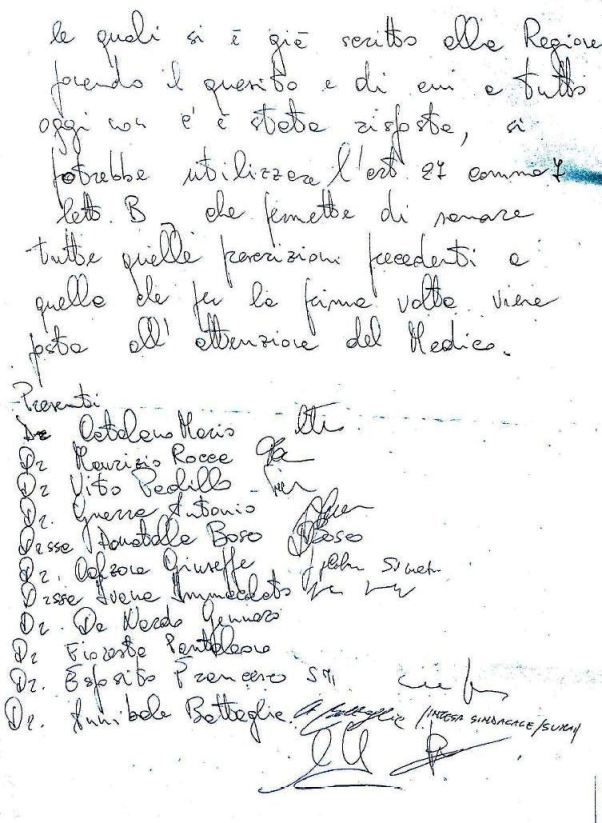 le quali si è già scritto alla Regione
facendo il quesito e di cui a tutto
oggi non c'è stata risposta, si
potrebbe utilizzare l'art 27 comma 7
lett. B che permette di sanare
tutte quelle prescrizioni precedenti a
quella che per la prima volta viene
posta all'attenzione del Medico.
Presenti
Dr Catalano Mario
Dr Maurizio Rocca
Dr Vito
Dr. Guerra Antonio
Dr.ssa Donatella Bosco Bosco
Dr. Giuseppe
Dr.ssa Ivana Immacolata
Dr. De Nardo Gennaro
Dr Fioresta Pantaleone
Dr. Esposito Francesco
Dr. Annibale Battaglia. /INTESA SINDACALE/SUMAI